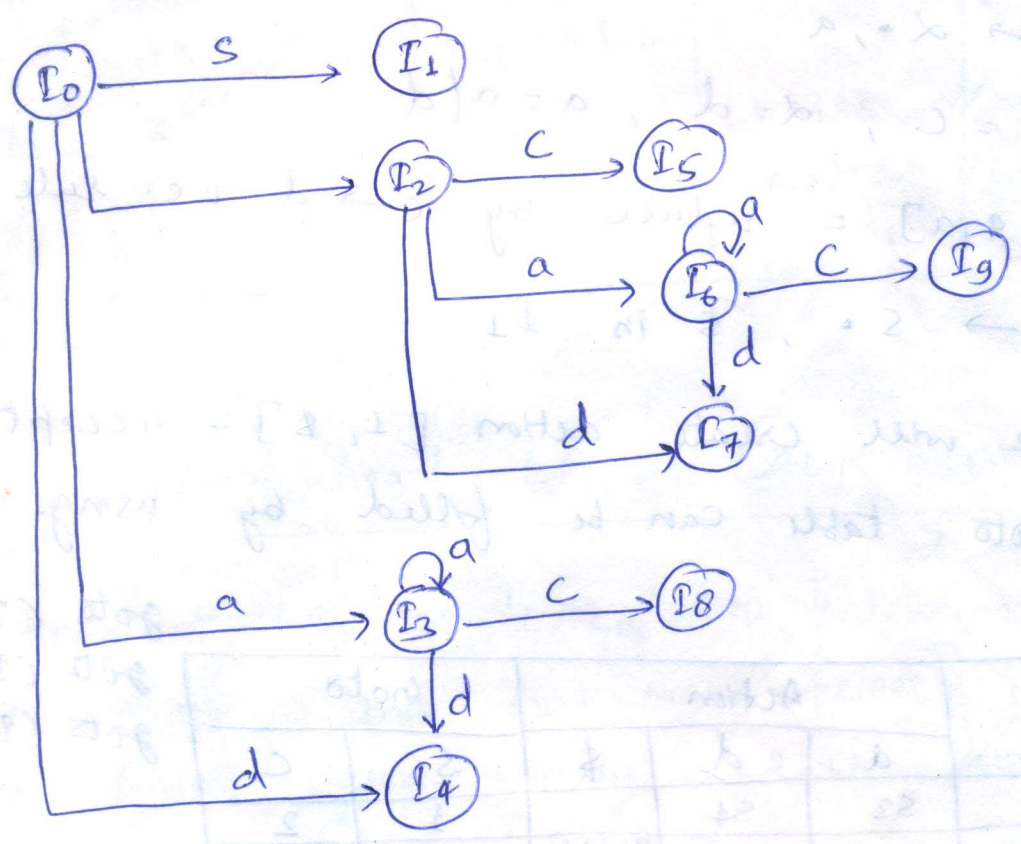 I0 S I1
I2 C I5
a I6 a C I9
d
d I7
a I3 a C I8
d
d I4